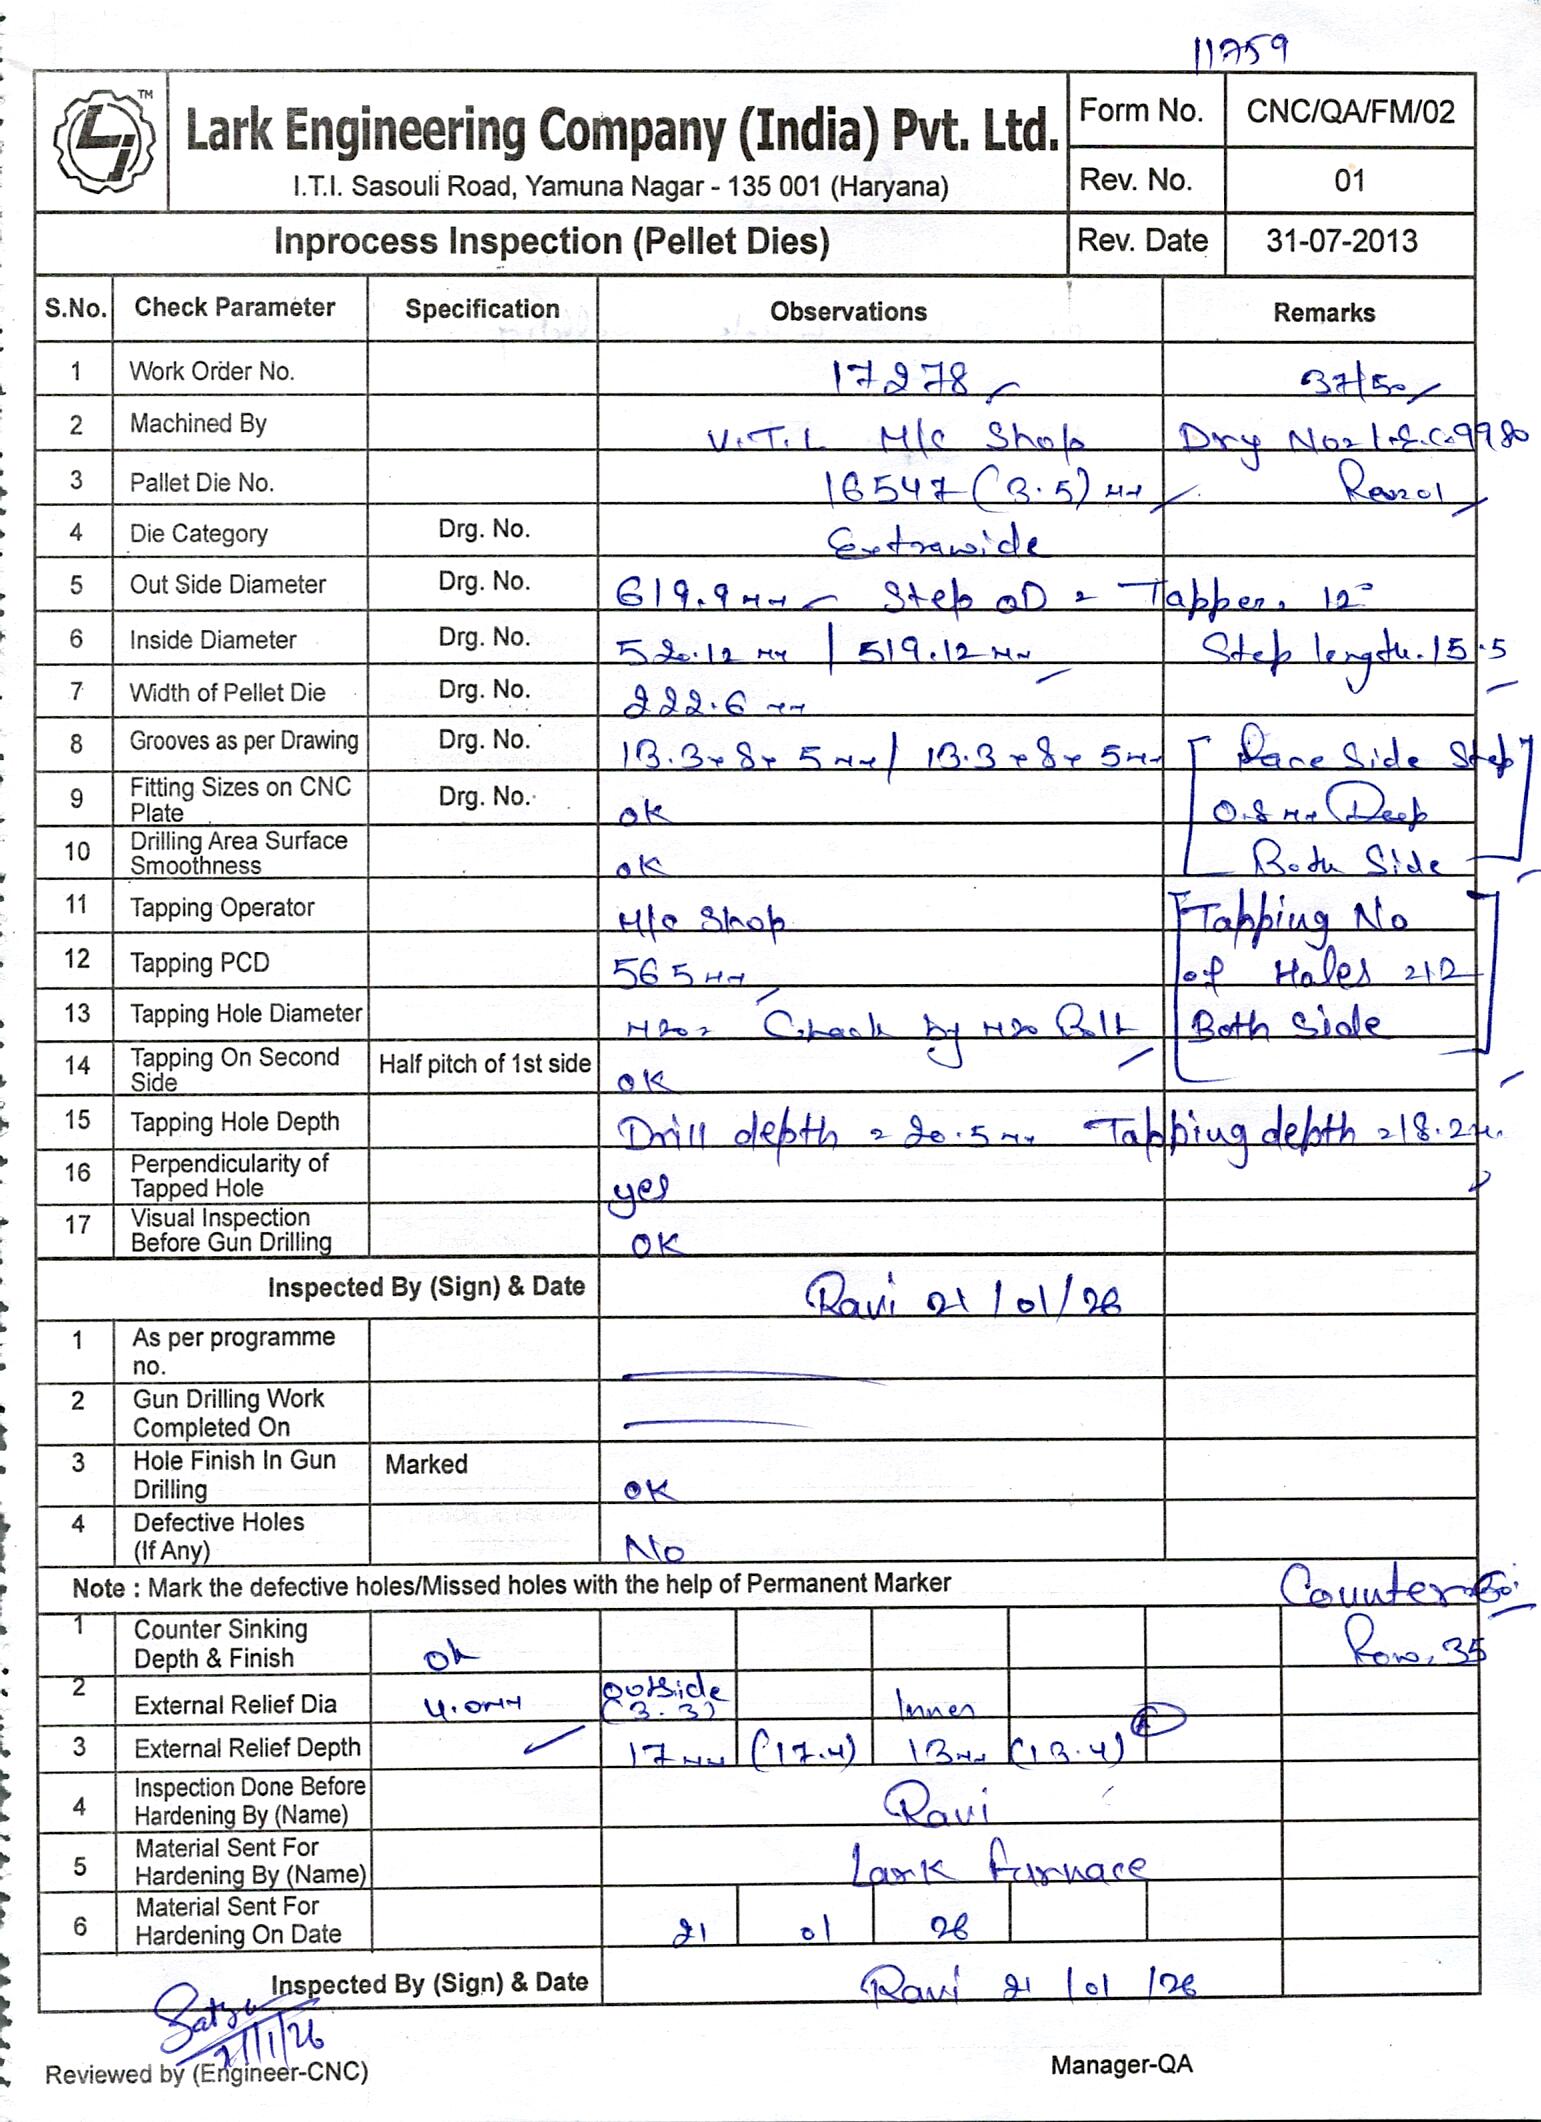 11759
TM
Lark Engineering Company (India) Pvt. Ltd.
I.T.I. Sasouli Road, Yamuna Nagar - 135 001 (Haryana)
Form No. CNC/QA/FM/02
Rev. No. 01
Inprocess Inspection (Pellet Dies) Rev. Date 31-07-2013
S.No. Check Parameter Specification Observations Remarks
1 Work Order No. 17278 37/50
2 Machined By V.T.L M/c Shop Drg No= L.E.C.9980
3 Pallet Die No. 16547 (3.5) mm
4 Die Category Drg. No. Extrawide
5 Out Side Diameter Drg. No. 619.9mm Step OD = Tapper. 12°
6 Inside Diameter Drg. No. 520.12 mm / 519.12mm Step length.15.5
7 Width of Pellet Die Drg. No. 222.6 mm
8 Grooves as per Drawing Drg. No. 13.3x8x5mm/ 13.3x8x5mm Face Side Step
9 Fitting Sizes on CNC Plate Drg. No. ok 0.8mm Deep
10 Drilling Area Surface Smoothness ok Both Side
11 Tapping Operator M/c Shop Tapping No
12 Tapping PCD 565mm of Holes =12
13 Tapping Hole Diameter M20= Check by M20 Bolt Both Side
14 Tapping On Second Side Half pitch of 1st side ok
15 Tapping Hole Depth Drill depth = 20.5mm Tapping depth =18.2m.
16 Perpendicularity of Tapped Hole yes
17 Visual Inspection Before Gun Drilling OK
Inspected By (Sign) & Date Ravi 21/01/26
1 As per programme no.
2 Gun Drilling Work Completed On
3 Hole Finish In Gun Drilling Marked OK
4 Defective Holes (If Any) No
Note : Mark the defective holes/Missed holes with the help of Permanent Marker Counter
1 Counter Sinking Depth & Finish ok Row. 35
2 External Relief Dia 4.0mm outside (3.3) Inner
3 External Relief Depth 17mm (17.4) 13mm (13.4)
4 Inspection Done Before Hardening By (Name) Ravi
5 Material Sent For Hardening By (Name) Lark furnace
6 Material Sent For Hardening On Date 21 01 26
Inspected By (Sign) & Date Ravi 21/01/26
21/1/26
Reviewed by (Engineer-CNC) Manager-QA